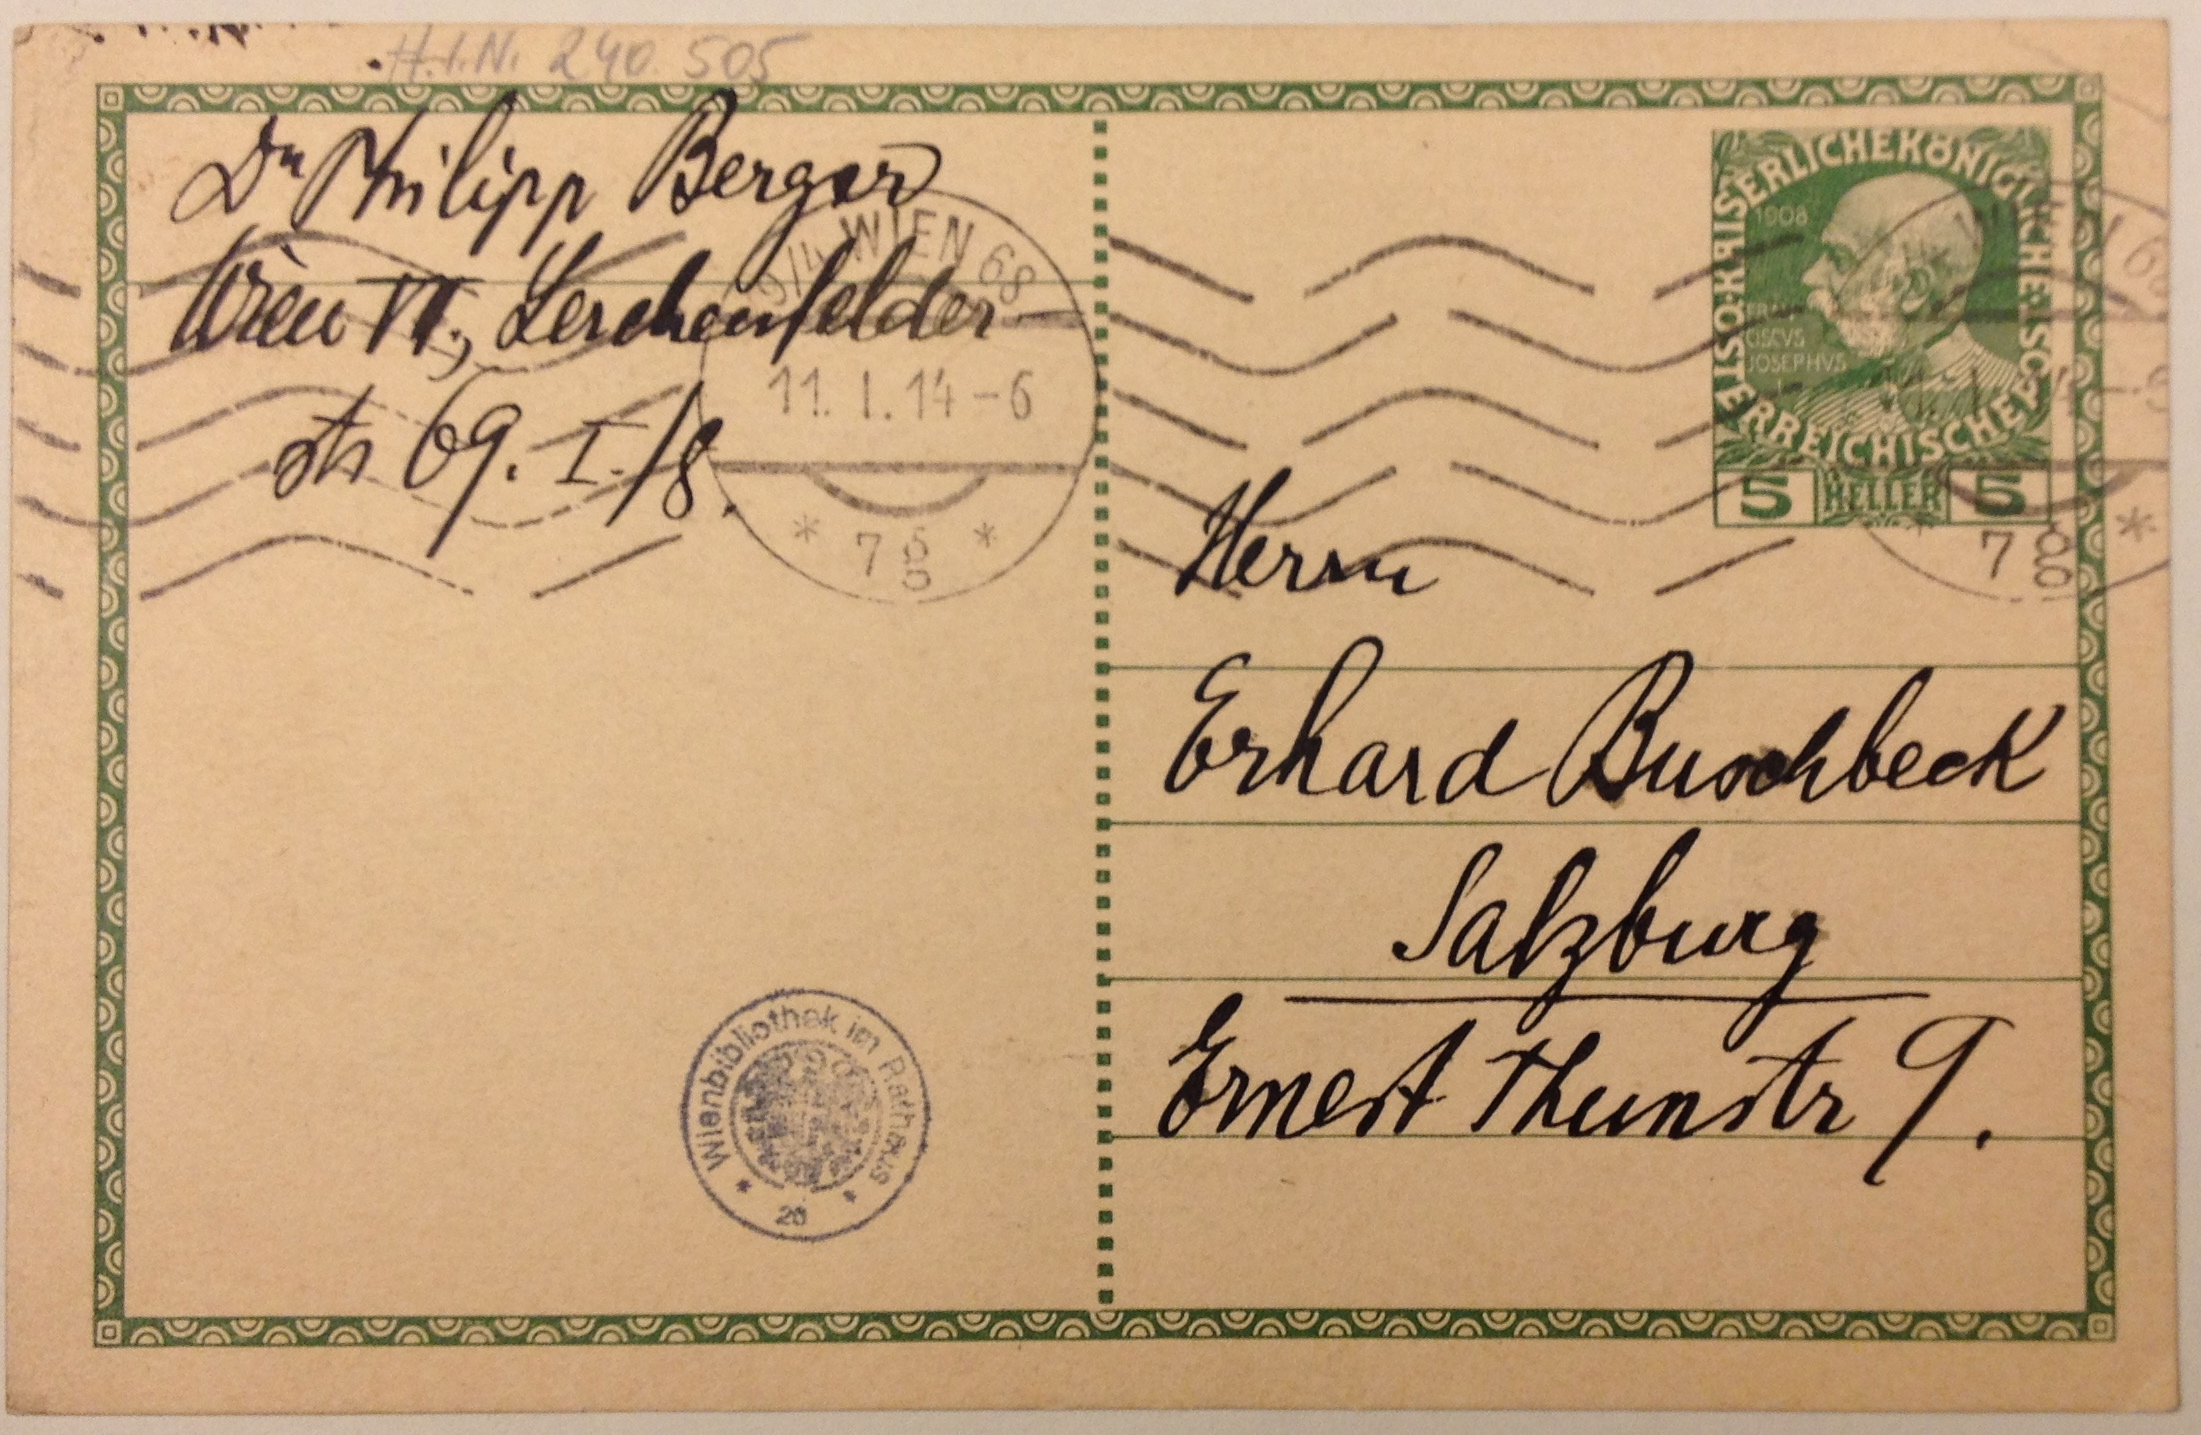 H.I.N. 240.505
Dr Philipp Berger
Wien VII., Lerchenfelder-
str 69. I./8.
19/4 WIEN 68
11. I. 14 - 6
* 7 5 8 *
KAISERLICHEKÖNIGLICHE
ÖSTERREICHISCHEPOST
1908
FRAN
CISCVS
JOSEPHVS
I
5 HELLER 5
7 8 *
Herrn
Erhard Buschbeck
Salzburg
Ernest Thunstr 9.
Wienbibliothek im Rathaus
* 20 *